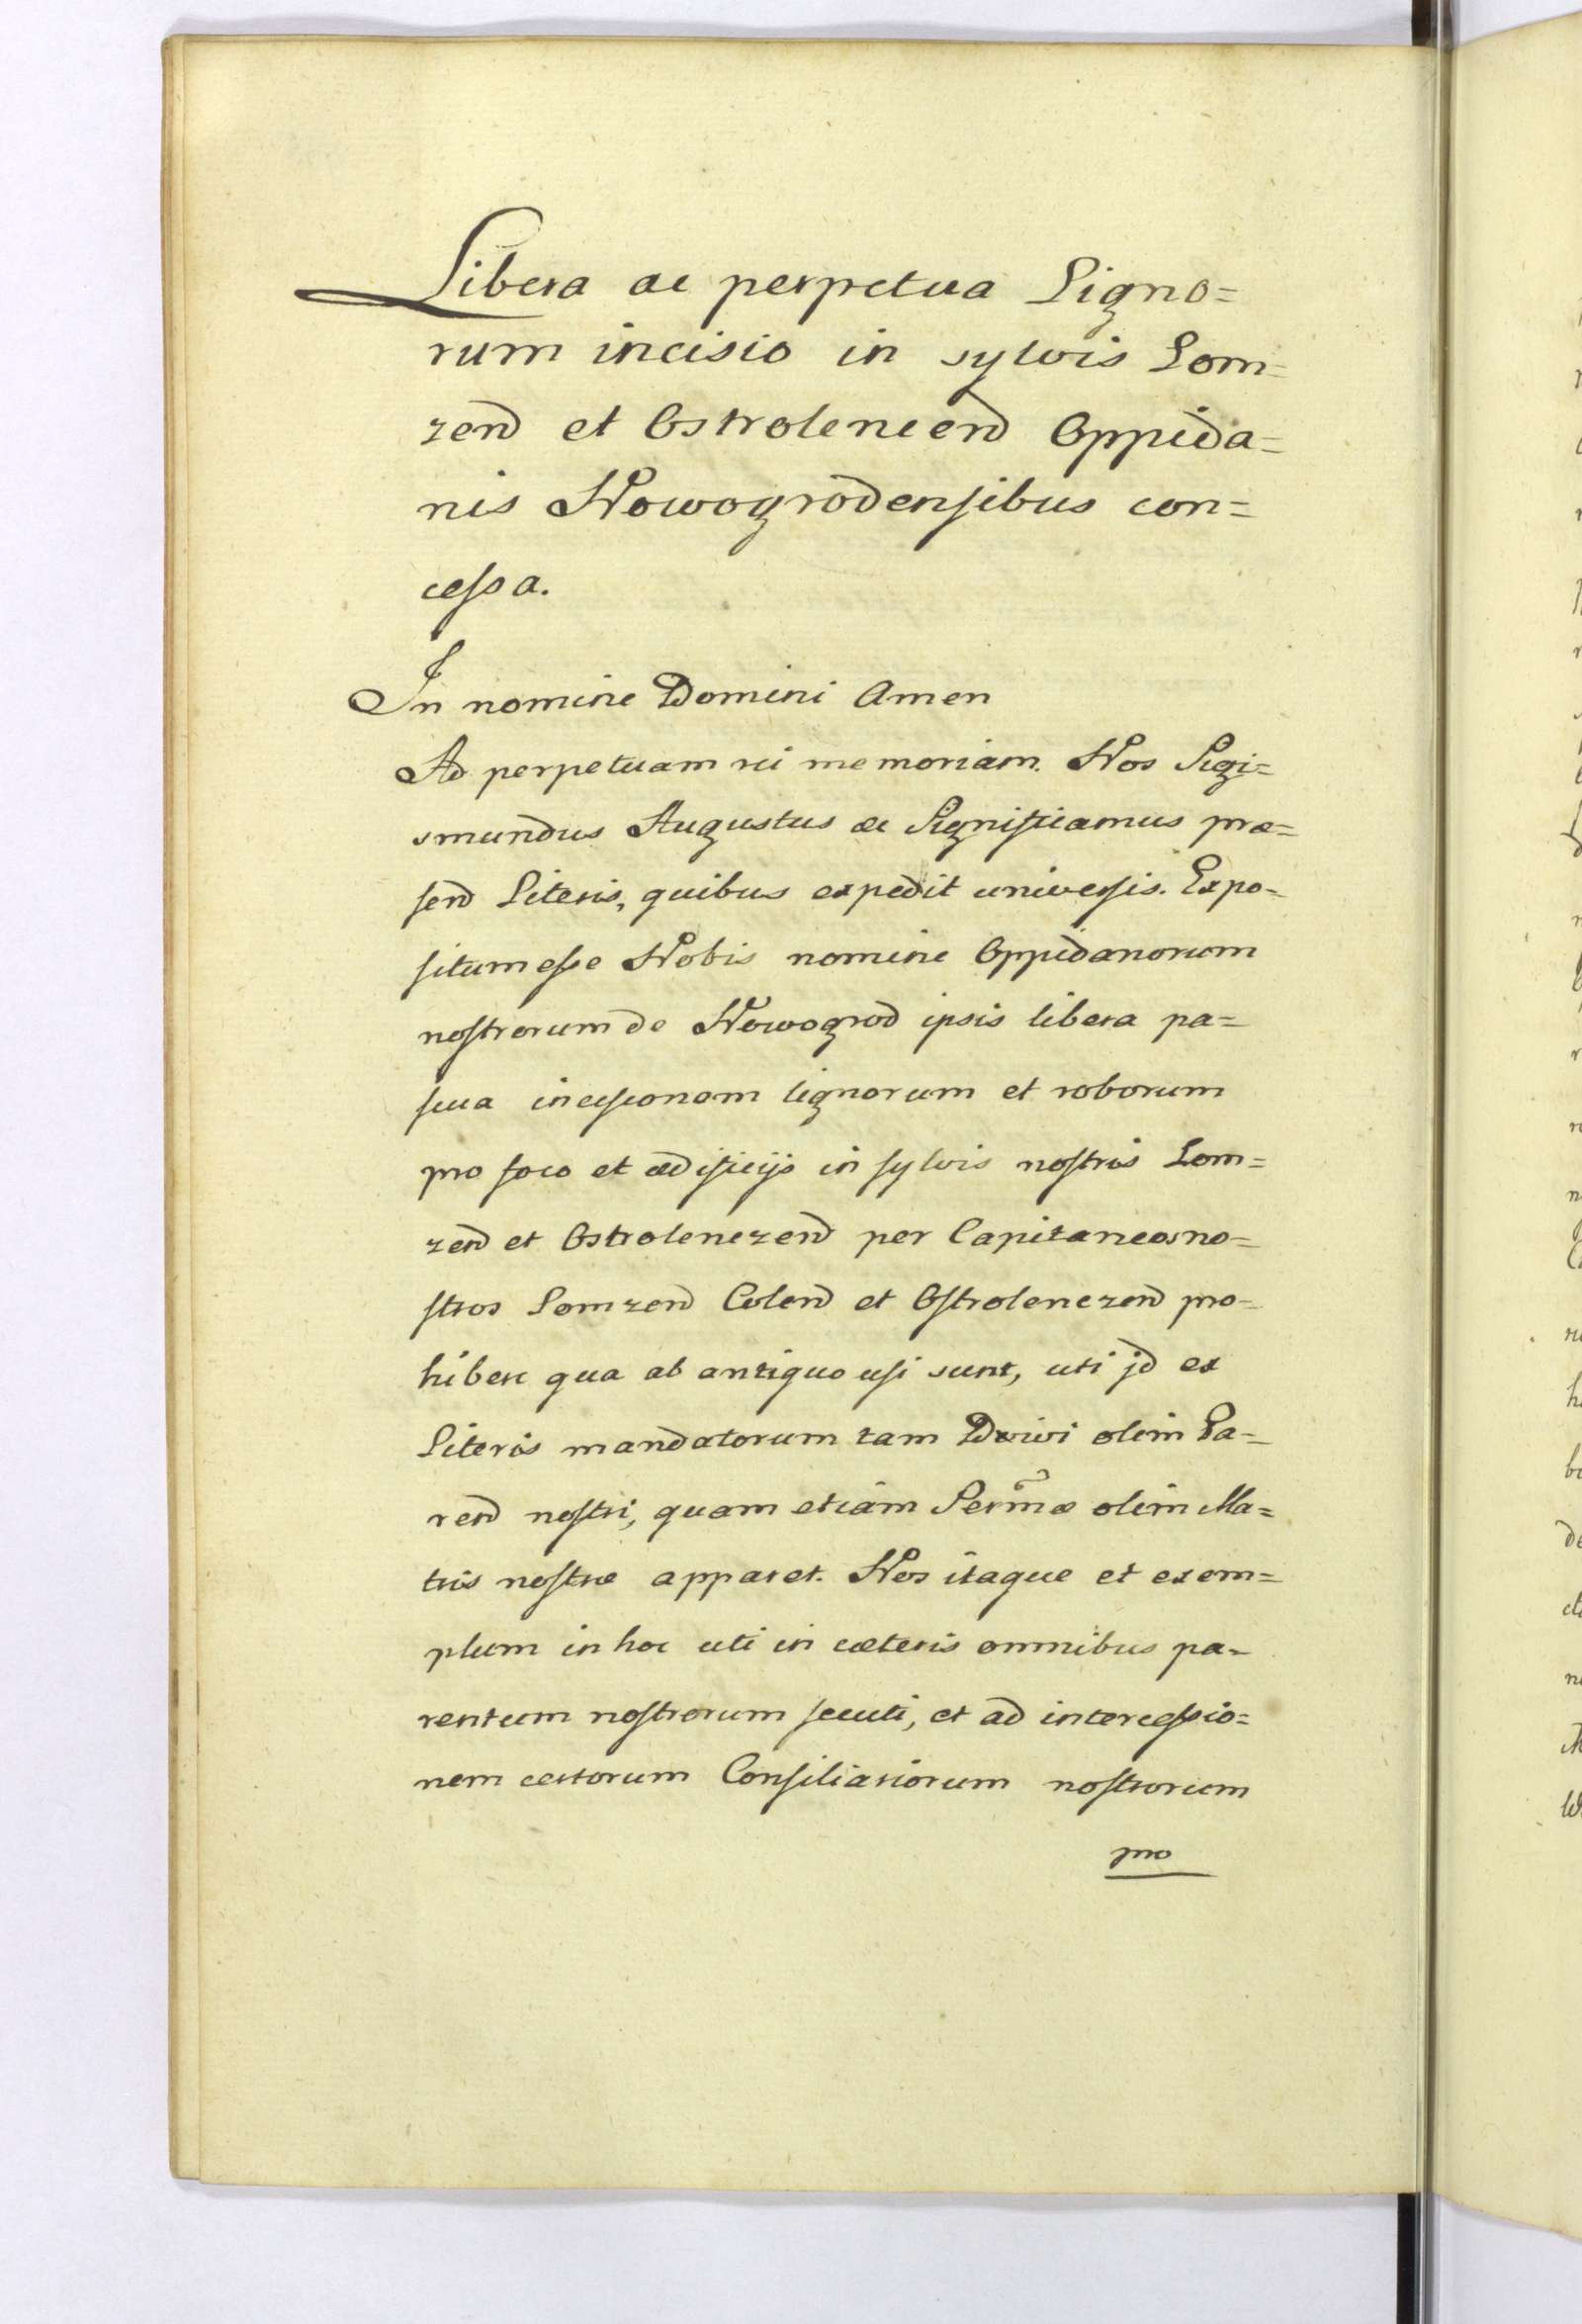 Libera ac perpetua Ligno=
rum incisio in sylvis Lom=
zend et Ostrolencend Oppida=
nis Nowogrodensibus con=
cessa.
In nomine Domini Amen
Ad perpetuam rei memoriam. Nos Sigi=
smundus Augustus &c Significamus præ=
send Literis, quibus expedit universis. Expo=
situm esse Nobis nomine Oppidanorum
nostrorum de Nowogrod ipsis libera pa=
scua incisionem lignorum et roborum
pro foco et ædificijs in sylvis nostris Lom=
zend et Ostrolenczend per Capitaneos no=
stros Lomzend Colend et Ostrolenczend pro=
hiberi qua ab antiquo usi sunt, uti jd ex
Literis mandatorum tam Divi olim Pa=
rend nostri, quam etiam Sermæ olim Ma=
tris nostræ apparet. Nos itaque et exem=
plum in hoc uti in cæteris omnibus pa=
rentum nostrorum secuti, et ad intercessio=
nem certorum Consiliariorum nostrorum
pro